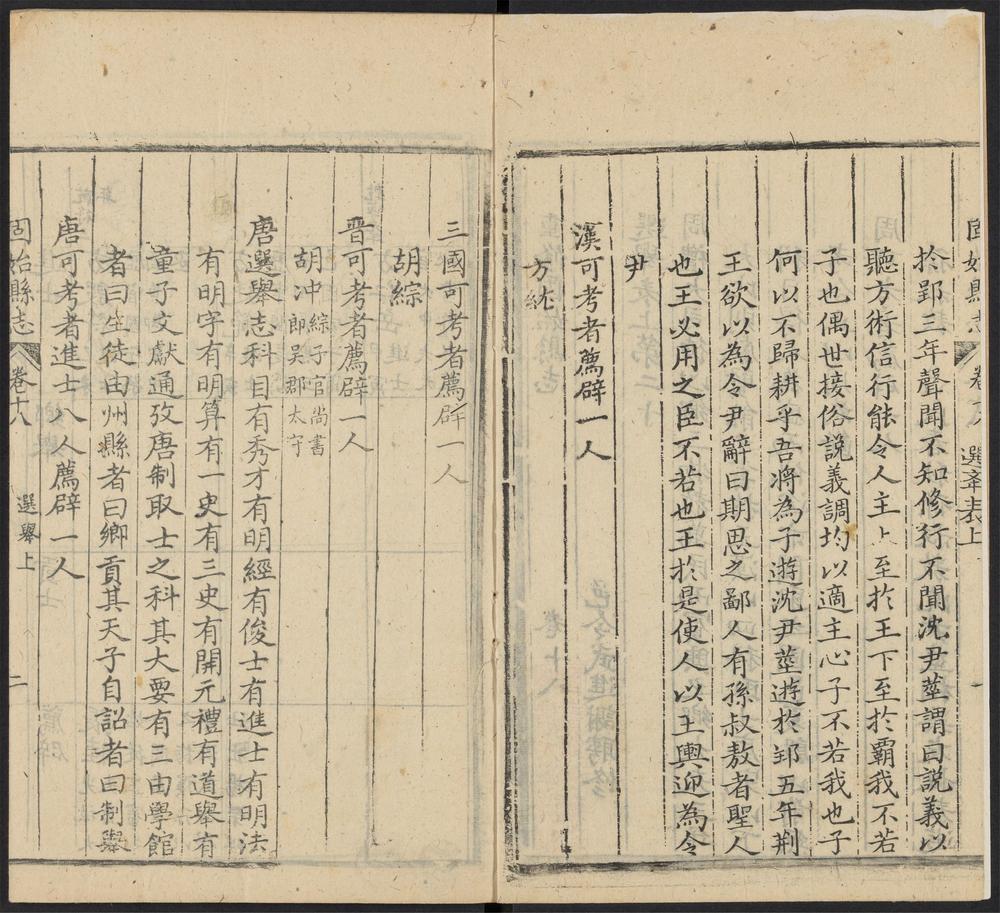 固始縣志 卷十八 選舉表上
於郢三年聲聞不知修行不聞沈尹莖謂曰説義以
聽方術信行能令人主上至於王下至於霸我不若
子也偶世接俗説義調均以適主心子不若我也子
何以不歸耕乎吾将為子遊沈尹莖遊於郢五年荆
王欲以為令尹辭曰期思之鄙人有孫叔敖者聖人
也王必用之臣不若也王於是使人以王輿迎為令
尹
漢可考者薦辟一人
方紞
三國可考者薦辟一人
胡綜
晋可考者薦辟一人
胡冲 綜子官尚書
郎吳郡太守
唐選舉志科目有秀才有明經有俊士有進士有明法
有明字有明算有一史有三史有開元禮有道舉有
童子文獻通攷唐制取士之科其大要有三由學館
者曰生徒由州縣者曰鄉貢其天子自詔者曰制舉
唐可考者進士八人薦辟一人
固始縣志 卷十八 選舉上 二